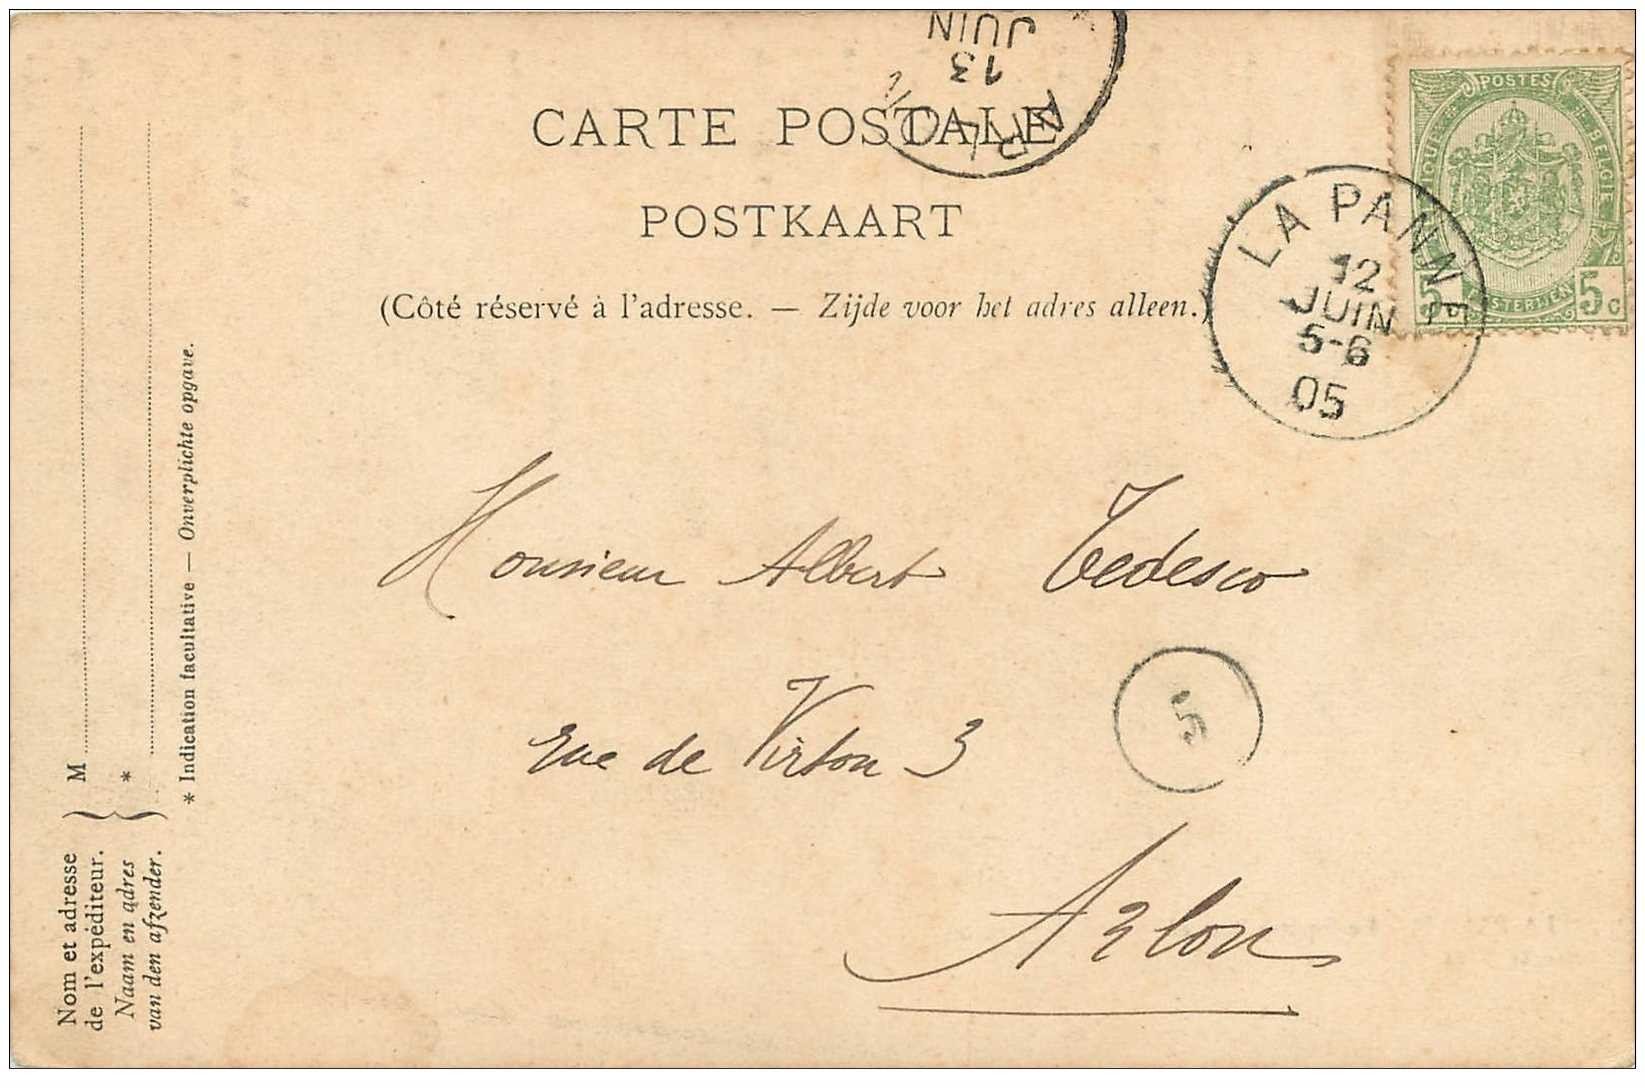 JUIN
13
ARLON
CARTE POSTALE
POSTKAART
(Côté réservé à l'adresse. — Zijde voor het adres alleen.)
POSTES
BELGIE
5 c
LA PANNE
12
JUIN
5-6
05
Monsieur Albert Tedesco
rue de Virton 3
5
Arlon
Nom et adresse
de l'expéditeur.
Naam en adres
van den afzender.
M
*
* Indication facultative — Onverplichte opgave.